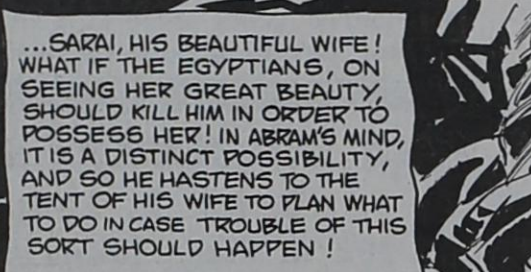 ...SARAI, HIS BEAUTIFUL WIFE!
WHAT IF THE EGYPTIANS, ON
SEEING HER GREAT BEAUTY,
SHOULD KILL HIM IN ORDER TO
POSSESS HER! IN ABRAM'S MIND,
IT IS A DISTINCT POSSIBILITY,
AND SO HE HASTENS TO THE
TENT OF HIS WIFE TO PLAN WHAT
TO DO IN CASE TROUBLE OF THIS
SORT SHOULD HAPPEN!